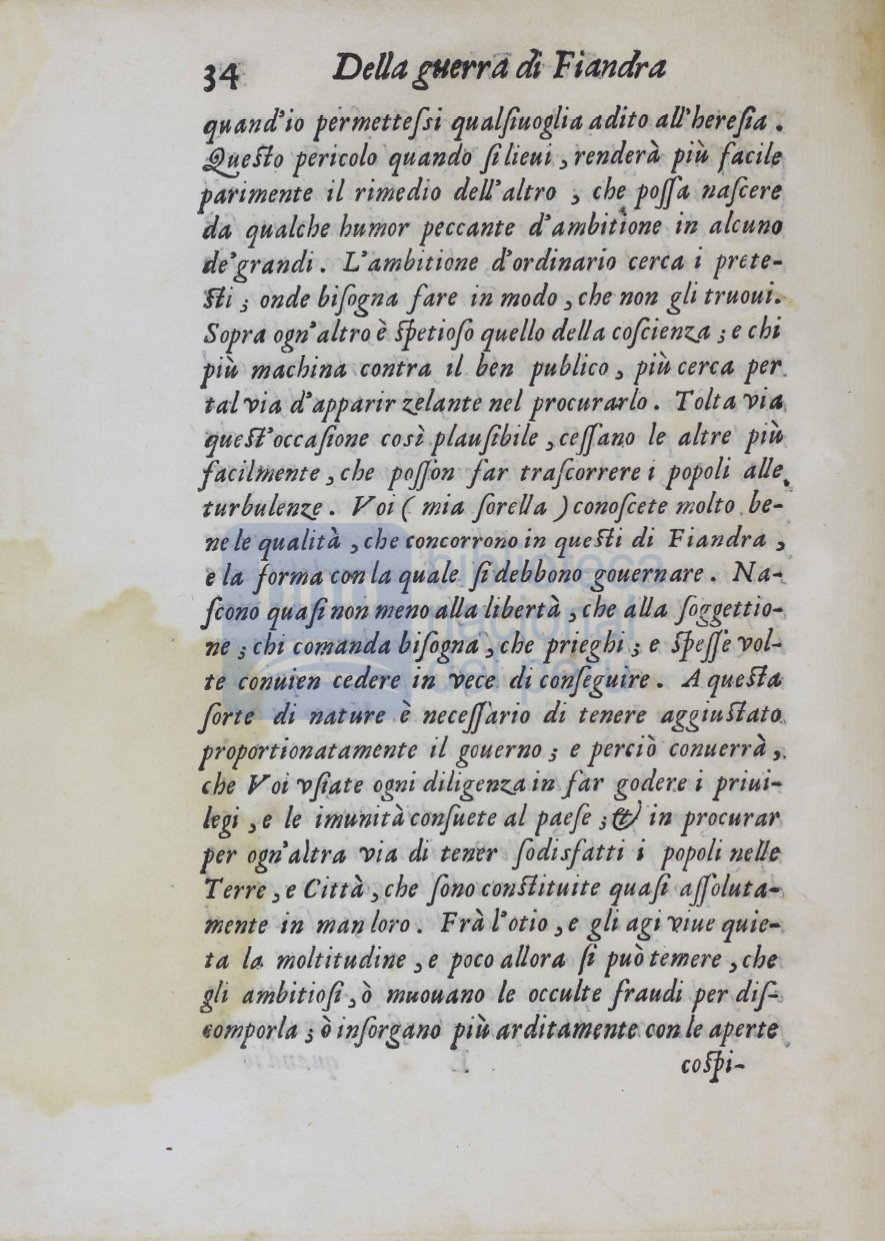 34 Della guerra di Fiandra
quand'io permetteſsi qualſiuoglia adito all'hereſia .
Queſto pericolo quando ſi lieui , renderà più facile
parimente il rimedio dell'altro , che poſſa naſcere
da qualche humor peccante d'ambitione in alcuno
de'grandi . L'ambitione d'ordinario cerca i prete-
ſti ; onde biſogna fare in modo , che non gli truoui.
Sopra ogn'altro è ſpetioſo quello della coſcienza ; e chi
più machina contra il ben publico , più cerca per
tal via d'apparir zelante nel procurarlo . Tolta via
queſt'occaſione così plauſibile , ceſſano le altre più
facilmente , che poſſon far traſcorrere i popoli alle
turbulenze . Voi ( mia ſorella ) conoſcete molto be-
ne le qualità , che concorrono in queſti di Fiandra ,
e la forma con la quale ſi debbono gouernare . Na-
ſcono quaſi non meno alla libertà , che alla ſoggettio-
ne ; chi comanda biſogna , che prieghi ; e ſpeſſe vol-
te conuien cedere in vece di conſeguire . A queſta
ſorte di nature è neceſſario di tenere aggiuſtato
proportionatamente il gouerno ; e perciò conuerrà ,
che Voi vſiate ogni diligenza in far godere i priui-
legi , e le imunità conſuete al paeſe ; & in procurar
per ogn'altra via di tener ſodisfatti i popoli nelle
Terre , e Città , che ſono conſtituite quaſi aſſoluta-
mente in man loro . Frà l'otio , e gli agi viue quie-
ta la moltitudine , e poco allora ſi può temere , che
gli ambitioſi , ò muouano le occulte fraudi per diſ-
comporla ; ò inſorgano più arditamente con le aperte
coſpi-